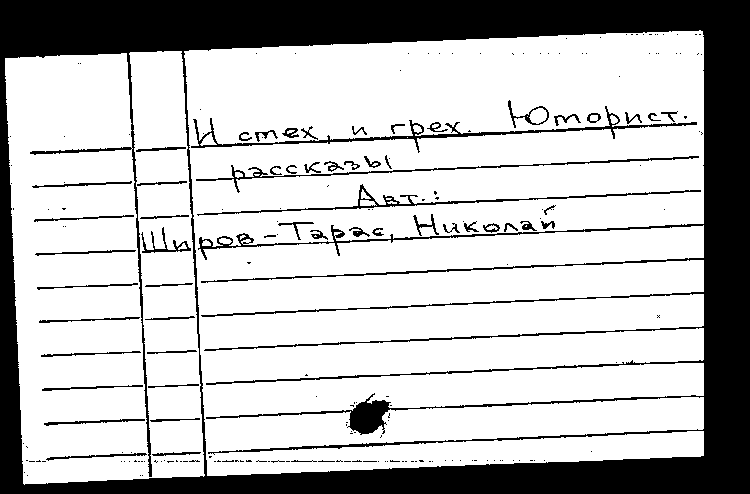 И смех, и грех. Юморист.
рассказы
Авт.:
Широв-Тарас, Николай